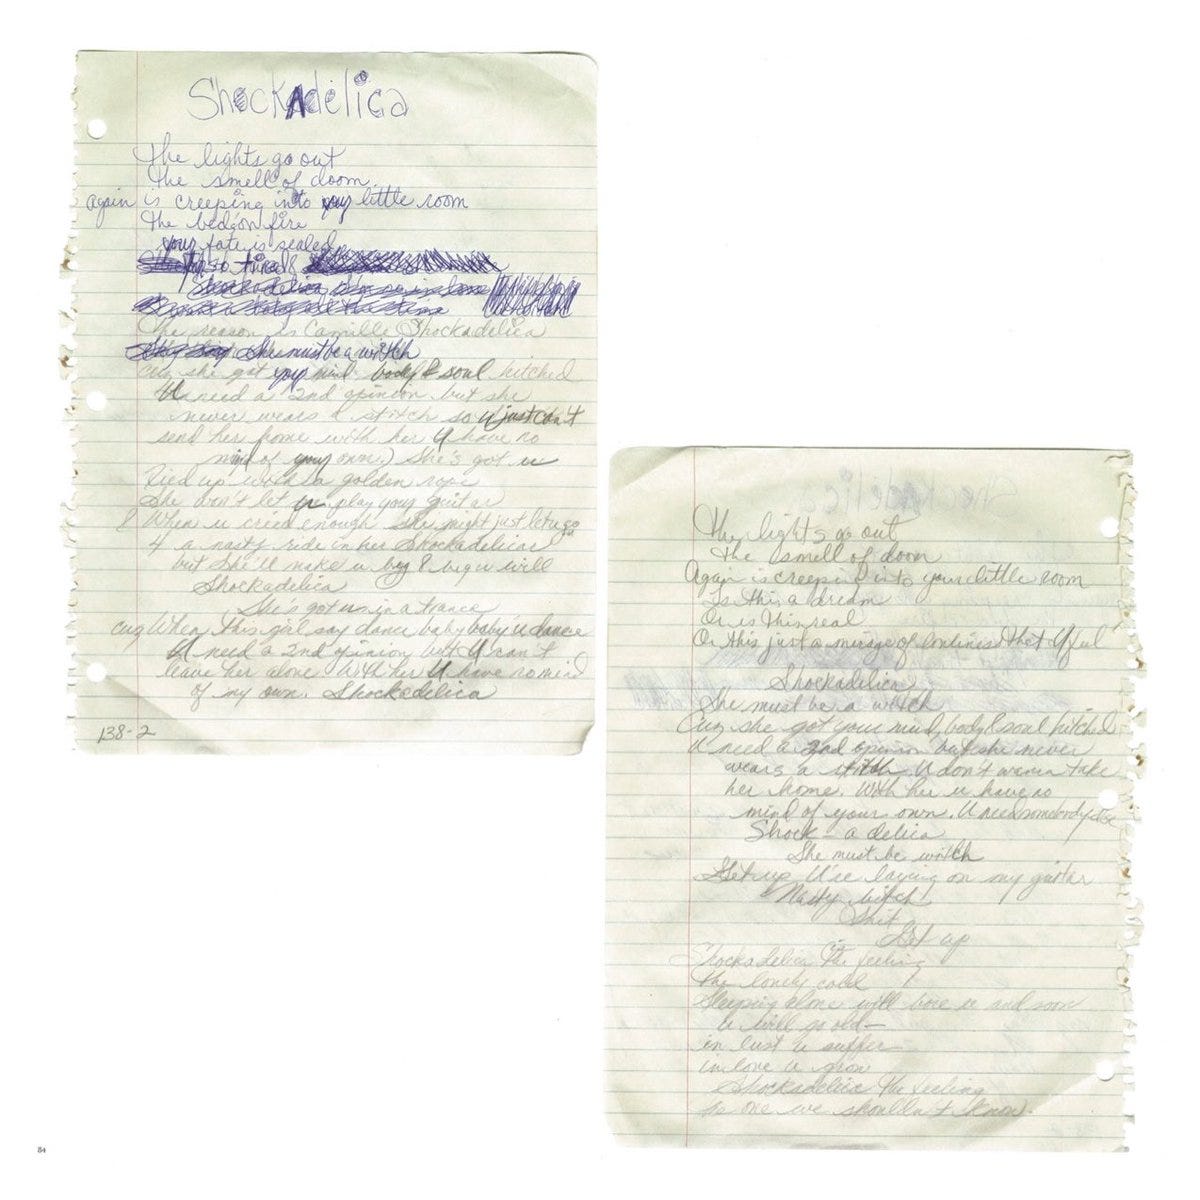 ShockAdelica
The lights go out
the smell of doom
again is creeping into your little room
the bedz on fire
your fate is sealed
so tired &
Shockadelica I'm so in love
all the time
The reason is Camille Shockadelica
She must be a witch
cuz she got your mind body & soul hitched
U need a 2nd opinion but she
never wears a stitch so u just can't
send her home with her U have no
mind of your own.) She's got u
Tied up with a golden rope
She won't let u play your guitar
& When u cried enough she might just let u go
4 a nasty ride in her Shockadelicar
but she'll make u beg & beg u will
Shockadelica
She's got us in a trance
cuz When this girl say dance baby baby u dance
U need a 2nd opinion but U can't
leave her alone With her U have no mind
of my own. Shockadelica
138-2
The lights go out
the smell of doom
Again is creeping into your little room
Is this a dream
Or is this real
Or this just a mirage of lonliness that U feel
Shockadelica
She must be a witch
Cuz she got your mind, body & soul hitched
U need a 2nd opinion but she never
wears a stitch U don't wanna take
her home. With her u have no
mind of your own. U need somebody else
Shock - a delica
She must be witch
Get up U're laying on my guitar
Nasty bitch
Shit
Get up
Shockadelica the feeling
the lonely cold
Sleeping alone will bore u and soon
u will go old—
in lust u suffer—
in love u grow
Shockadelica the feeling
no one we shouldn't know.
84